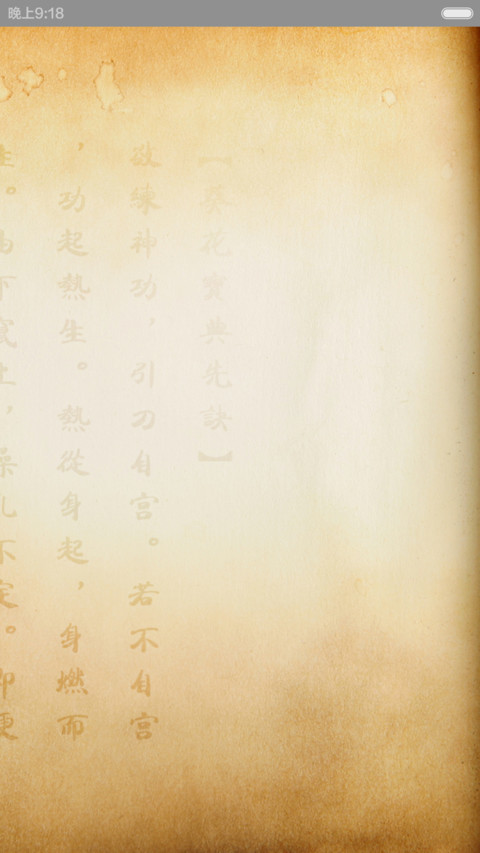 晚上9:18
【葵花寶典先訣】
欲練神功，引刀自宮。若不自宮
，功起熱生。熱從身起，身燃而
生。
下
止，燥
亂不定。即便